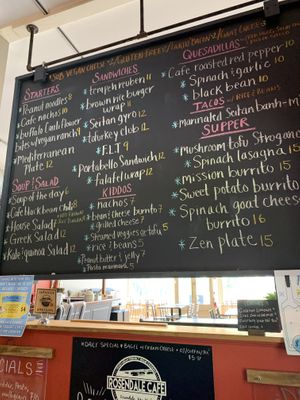 SUB VEGAN CHEESE $2/GLUTEN FREE $1/
STARTERS
*Peanut noodles 8
*Cafe nachos 10
*Buffalo Cauliflower
bites w/vegan ranch 9
*Mediterranean
Plate 12
SOUP & SALAD
*Soup of the day 6
*Cafe black bean Chili 8
*House Salad 7
*Greek Salad 12
*Kale & quinoa Salad 12
SANDWICHES
*tempeh reuben 11
*brown rice burger
wrap 10
*Seitan gyro 12
*tofurkey club 12
*F.L.T 9
*Portabello Sandwich 12
*falafel wrap 12
KIDDOS
*nachos 7
*bean & cheese burrito 7
*grilled cheese 7
*Steamed veggies w/tofu 5
*rice & beans 5
*Peanut butter & jelly 7
QUESADILLAS
*Cafe roasted red pepper 10
*Spinach & garlic 10
*black bean 10
TACOS w/ RICE & BEANS
*Marinated Seitan banh-m
SUPPER
*Mushroom tofu Strogano
*Spinach lasagna 15
*mission burrito 15
*Sweet potato burrito
*Spinach goat cheese
burrito 16
*Zen plate 15
*DAILY SPECIAL*
ROSENDALE CAFE
CIALS